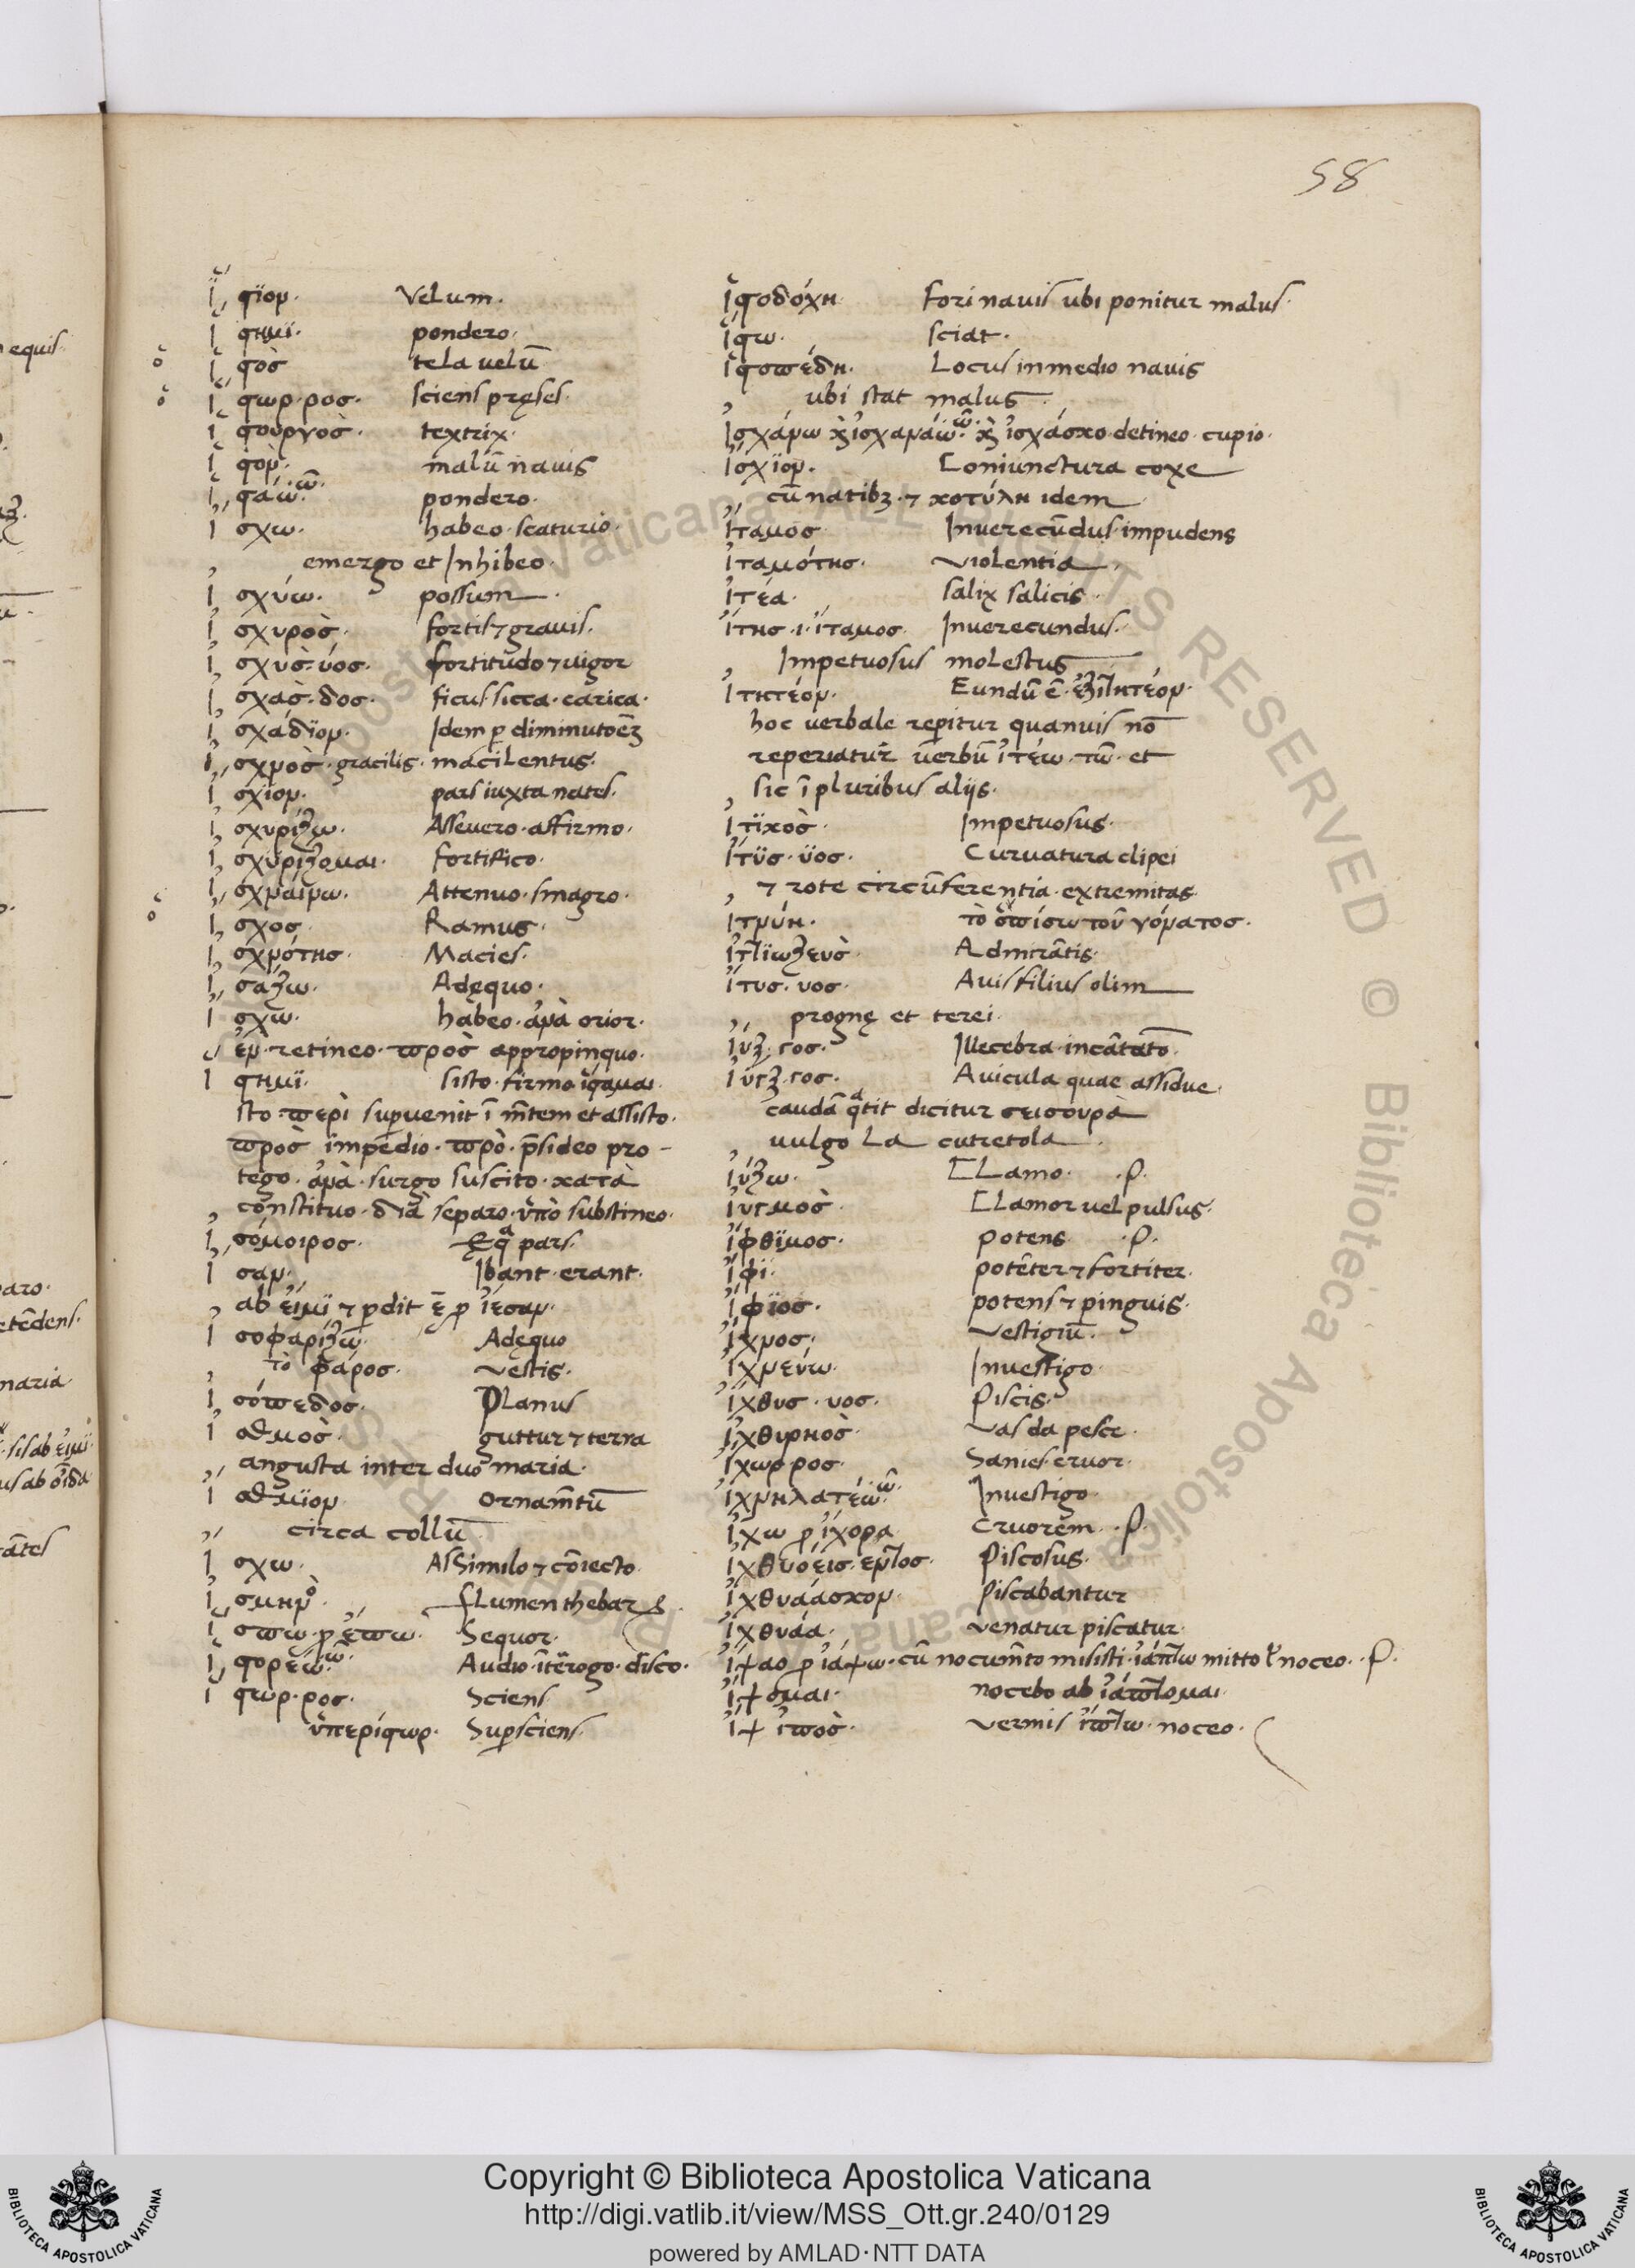 58
ἱστίον. Velum.
ἵστημι. pondero.
ὁ ἱστὸς tela velū
ὁ ἵστωρ. ρος. sciens pręses.
ἱστουργὸς. textrix.
ἱστὸν. malū navis
ἱστάω. ῶ. pondero.
ἴσχω. habeo. scaturio.
emergo et Inhibeo.
ἰσχύω. possum.
ἰσχυρὸς. fortis & gravis.
ἰσχὺς. ύος. fortitudo & vigor
ἰσχὰς. δος. ficus sicca. carica.
ἰσχάδιον. Idem p diminutoēz
ἰσχνὸς. gracilis. macilentus.
ἰσχίον. pars iuxta nates.
ἰσχυρίζω. Assevero. affirmo.
ἰσχυρίζομαι. fortifico.
ἰσχναίνω. Attenuo. smagro.
ὁ ἴσχος. Ramus.
ἰσχνότης. Macies.
ἰσάζω. Adęquo.
ἴσχω. habeo. ἀνὰ orior.
ἐν. retineo. πρὸς appropinquo.
ἵστημι. sisto. firmo ἵσταμαι
sto. περὶ supvenit ī mtem et assisto.
πρὸς impedio. πρὸ. psideo pro-
tego. ἀνὰ. surgo suscito. κατὰ
constituo. διὰ separo. ὑπὸ substineo.
ἰσόμοιρος. Ęqa pars.
ἴσαν. Ibant. erant.
ab εἶμι & pdit ē p ἵεσαν.
ἰσοφαρίζω. Adęquo
τὸ φάρος. vestis.
ἰσόπεδος. Planus
ἰσθμὸς. guttur & terra
angusta inter duo maria.
ἴσθμιον ornamtū
circa collū
ἴσχω. Assimilo & cōiecto.
ἰσμηνὸ. flumen thebar
ἵσπω. p ἕπω. Sequor.
ἱστορέω. ῶ. Audio. īterogo. disco.
ἵστωρ. ρος. Sciens
ὑπερίστωρ. Supsciens.
ἱστοδόχη. fori navis ubi ponitur malus.
ἵστω. sciat.
ἱστοπέδη. Locus in medio navis
ubi stat malus.
Ἰσχάνω κὶ ἰσχανάω. ῶ. κὶ ἰσχάσκο. detineo. cupio.
Ἰσχίον. Coniunctura coxe
cū natibz. & κοτύλη idem
Ἴταμος. Inverecūdus. impudens
Ἰταμότης. violentia.
Ἰτέα. salix salicis.
Ἴτης. ι. ἴταμος. Inverecundus.
Impetuosus molestus
Ἰτητέον. Eundū ē. ἐξιτητέον.
hoc verbale repitur quanvis nō
reperiatur verbū ἰτέω. τῶ. et
sic ī pluribus aliis.
Ἰτικὸς. Impetuosus.
Ἴτυς. υος. Curvatura clipei
& rote circūferentia. extremitas.
Ἰτνύη. τὸ ὀπίσω τοῦ γόνατος.
Admirātis.
Ἴτυς. υος. Avis filius olim
prognę et terei.
Ἴυξ. γος. Illecebra. incātatō.
Ἴυγξ. γος. Avicula quae assidue.
caudā qatit dicitur σεισουρὰ
vulgo La cutretola.
Ἰύζω. CLamo. .P.
Ἰυγμὸς. CLamor vel pulsus.
Ἴφθιμος. Potens. .P.
Ἶφι. potēter & fortiter.
Ἴφιος. potens & pinguis.
Ἴχνος. vestigiū.
Ἰχνεύω. Investigo.
Ἰχθυς. υος. Piscis.
Ἰχθιρηὸς. vas da pesce.
Ἴχωρ ρος. Sanies. cruor.
Ἰχνηλατέω. ῶ. Investigo.
Ἴχω p ἰχόρα Cruorem. .P.
Ἰχθυόεις. εντος. Piscosus.
Ἰχθυάασκον. Piscabantur
Ἰχθυάα. venatur piscatur.
Ἴψαο p ἰάψω. cū nocumto misisti. ἰάπτω mitto l noceo. .P.
Ἴψομαι. nocebo ab ἰάπτομαι.
Ἲψ ἰπὸς. vermis ἴπτω. noceo.
Copyright © Biblioteca Apostolica Vaticana
http://digi.vatlib.it/view/MSS_Ott.gr.240/0129
powered by AMLAD·NTT DATA
BIBLIOTECA APOSTOLICA VATICANA
BIBLIOTECA APOSTOLICA VATICANA